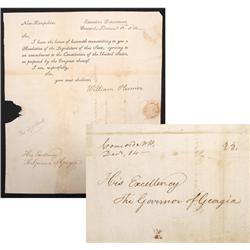 New-Hampshire. Executive Department
Sir,
I have the honor of herewith transmitting to you a
Resolution of the Legislature of this State, agreeing to
an amendment to the Constitution of the United States,
as proposed by the Congress thereof.
I am, respectfully,
Sir,
your most obedient,
William Plumer
His Excellency
The Governor of Georgia
Concord N.H.
Dec. 14
His Excellency
The Governor of Georgia